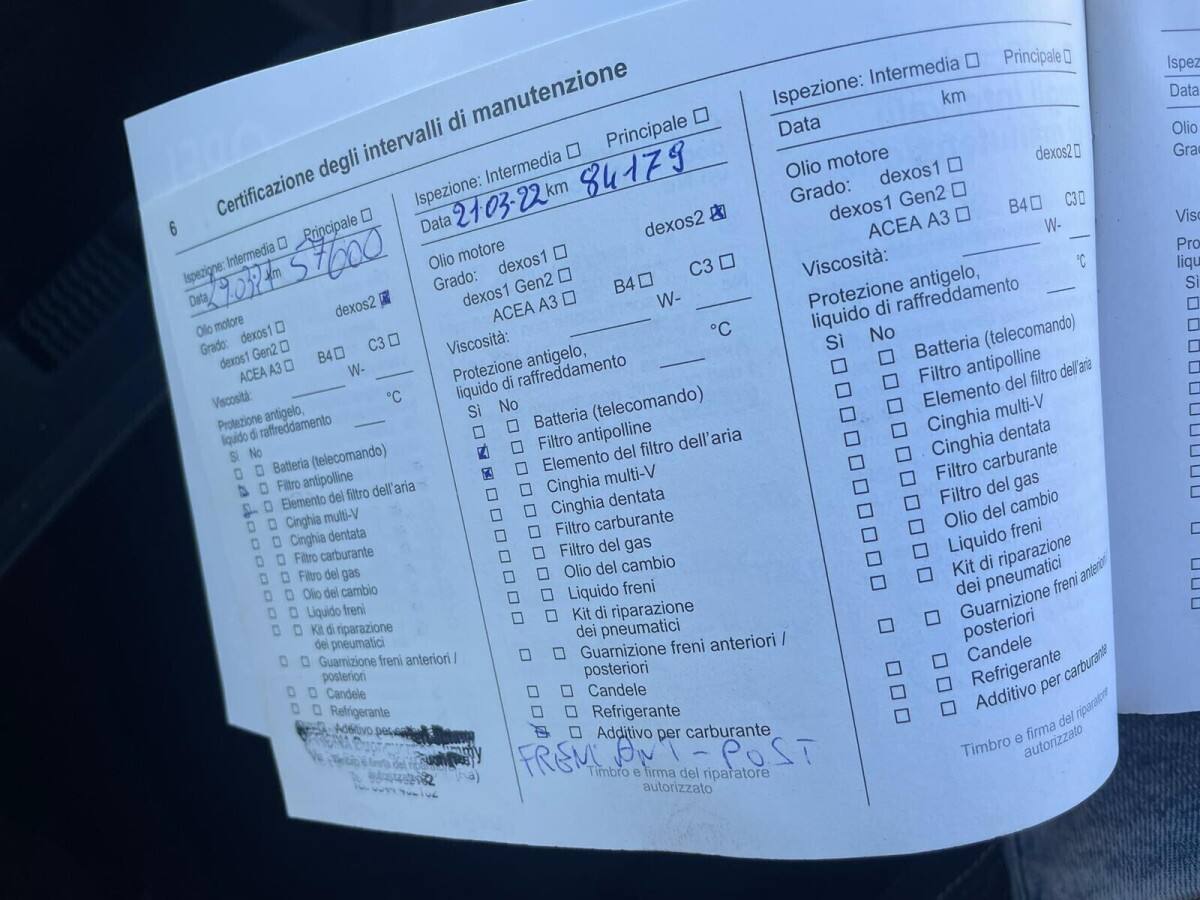 6 Certificazione degli intervalli di manutenzione
Ispezione: Intermedia Principale
Data 29.03.21 km 57600
Olio motore
Grado: dexos1 dexos2
dexos1 Gen2
ACEA A3 B4 C3
Viscosità: W-
Protezione antigelo,
liquido di raffreddamento °C
Sì No
Batteria (telecomando)
Filtro antipolline
Elemento del filtro dell'aria
Cinghia multi-V
Cinghia dentata
Filtro carburante
Filtro del gas
Olio del cambio
Liquido freni
Kit di riparazione
dei pneumatici
Guarnizione freni anteriori /
posteriori
Candele
Refrigerante
Additivo per
Ispezione: Intermedia Principale
Data 21.03.22 km 84179
Olio motore
Grado: dexos1 dexos2
dexos1 Gen2
ACEA A3 B4 C3
Viscosità: W-
Protezione antigelo,
liquido di raffreddamento °C
Sì No
Batteria (telecomando)
Filtro antipolline
Elemento del filtro dell'aria
Cinghia multi-V
Cinghia dentata
Filtro carburante
Filtro del gas
Olio del cambio
Liquido freni
Kit di riparazione
dei pneumatici
Guarnizione freni anteriori /
posteriori
Candele
Refrigerante
Additivo per carburante
FRENI ANT - POST
Timbro e firma del riparatore
autorizzato
Ispezione: Intermedia Principale
Data km
Olio motore
Grado: dexos1 dexos2
dexos1 Gen2
ACEA A3 B4 C3
Viscosità: W-
Protezione antigelo,
liquido di raffreddamento °C
Sì No
Batteria (telecomando)
Filtro antipolline
Elemento del filtro dell'aria
Cinghia multi-V
Cinghia dentata
Filtro carburante
Filtro del gas
Olio del cambio
Liquido freni
Kit di riparazione
dei pneumatici
Guarnizione freni anteriori /
posteriori
Candele
Refrigerante
Additivo per carburante
Timbro e firma del riparatore
autorizzato
Data
Olio
Sì